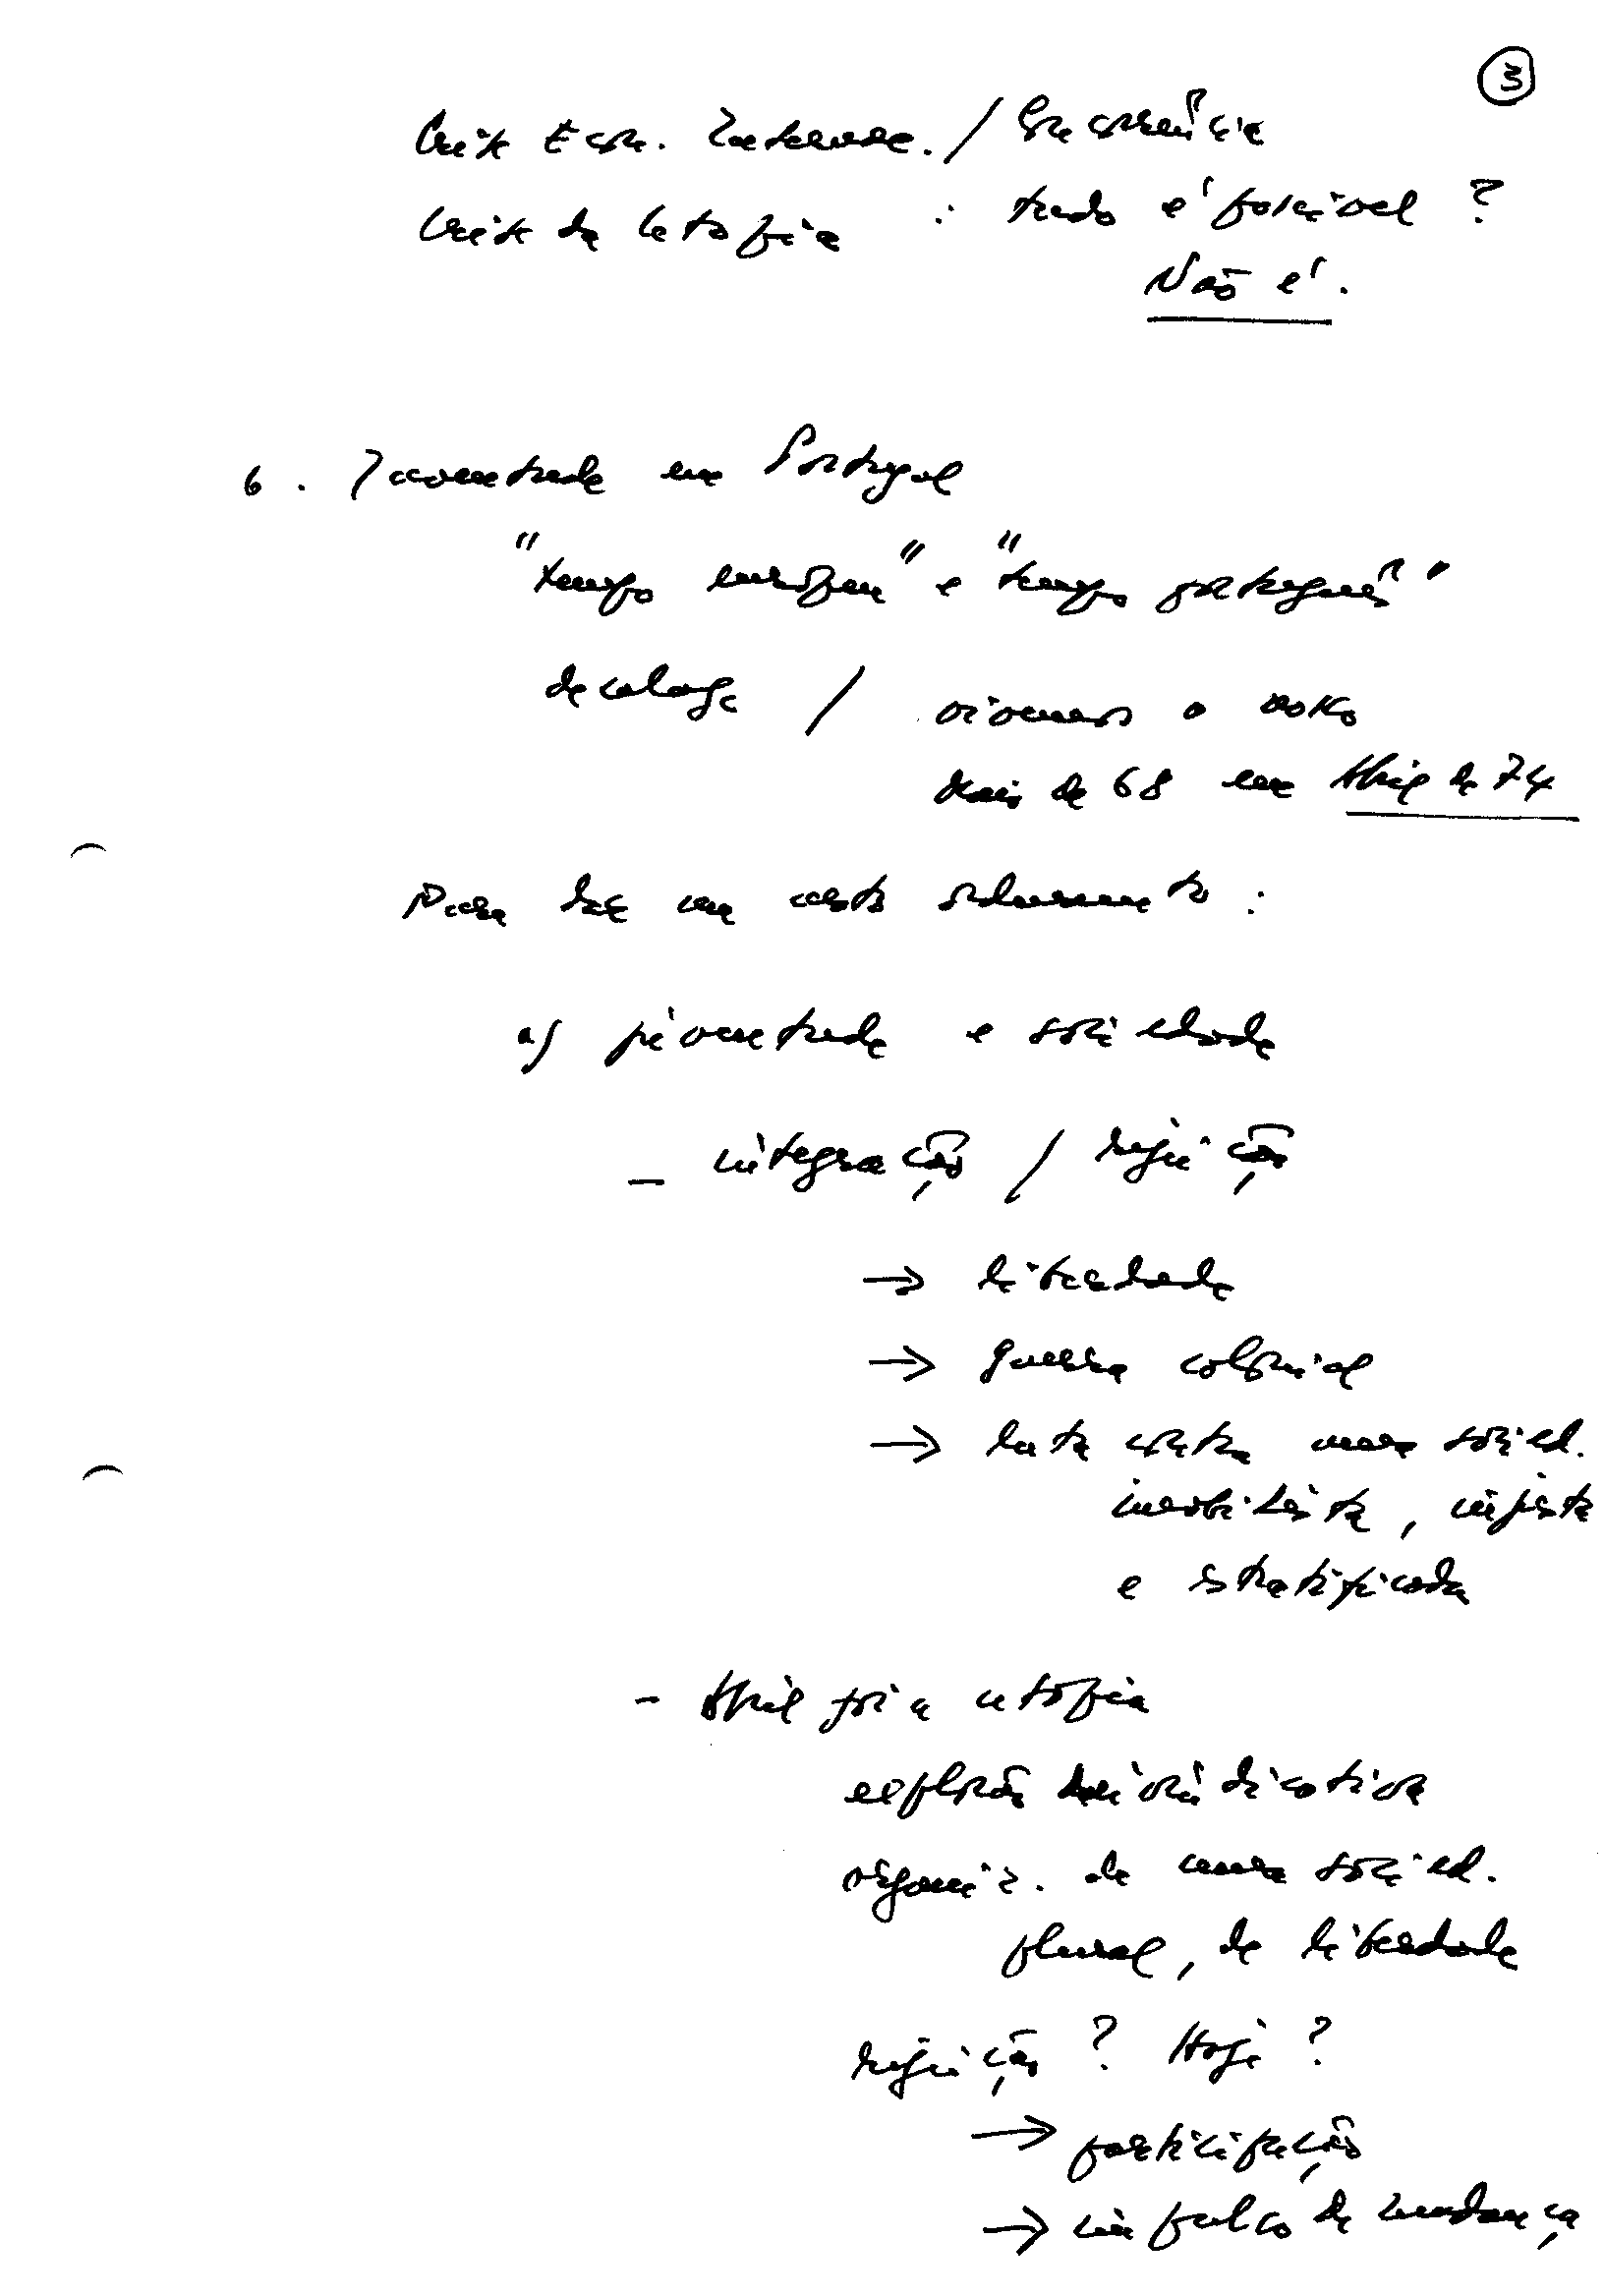 3
Crise Econ. Internac. / Concorrência
Crise da Utopia : tudo é possível ?
Não é.
6. Juventude em Portugal
"tempo europeu" e "tempo português"
decalage / vivemos o nosso
Maio de 68 em Abril de 74
Para haç um certo ordenamento :
a) juventude e sociedade
- integração / rejeição
→ liberdade
→ guerra colonial
→ luta contra uma socied.
imobilista, injusta
e estratificada
- Abril foi a utopia
explosão reivindicativa
organiz. de uma socied.
plural, de liberdade
rejeição ? Hoje ?
→ participação
→ impulso de mudança